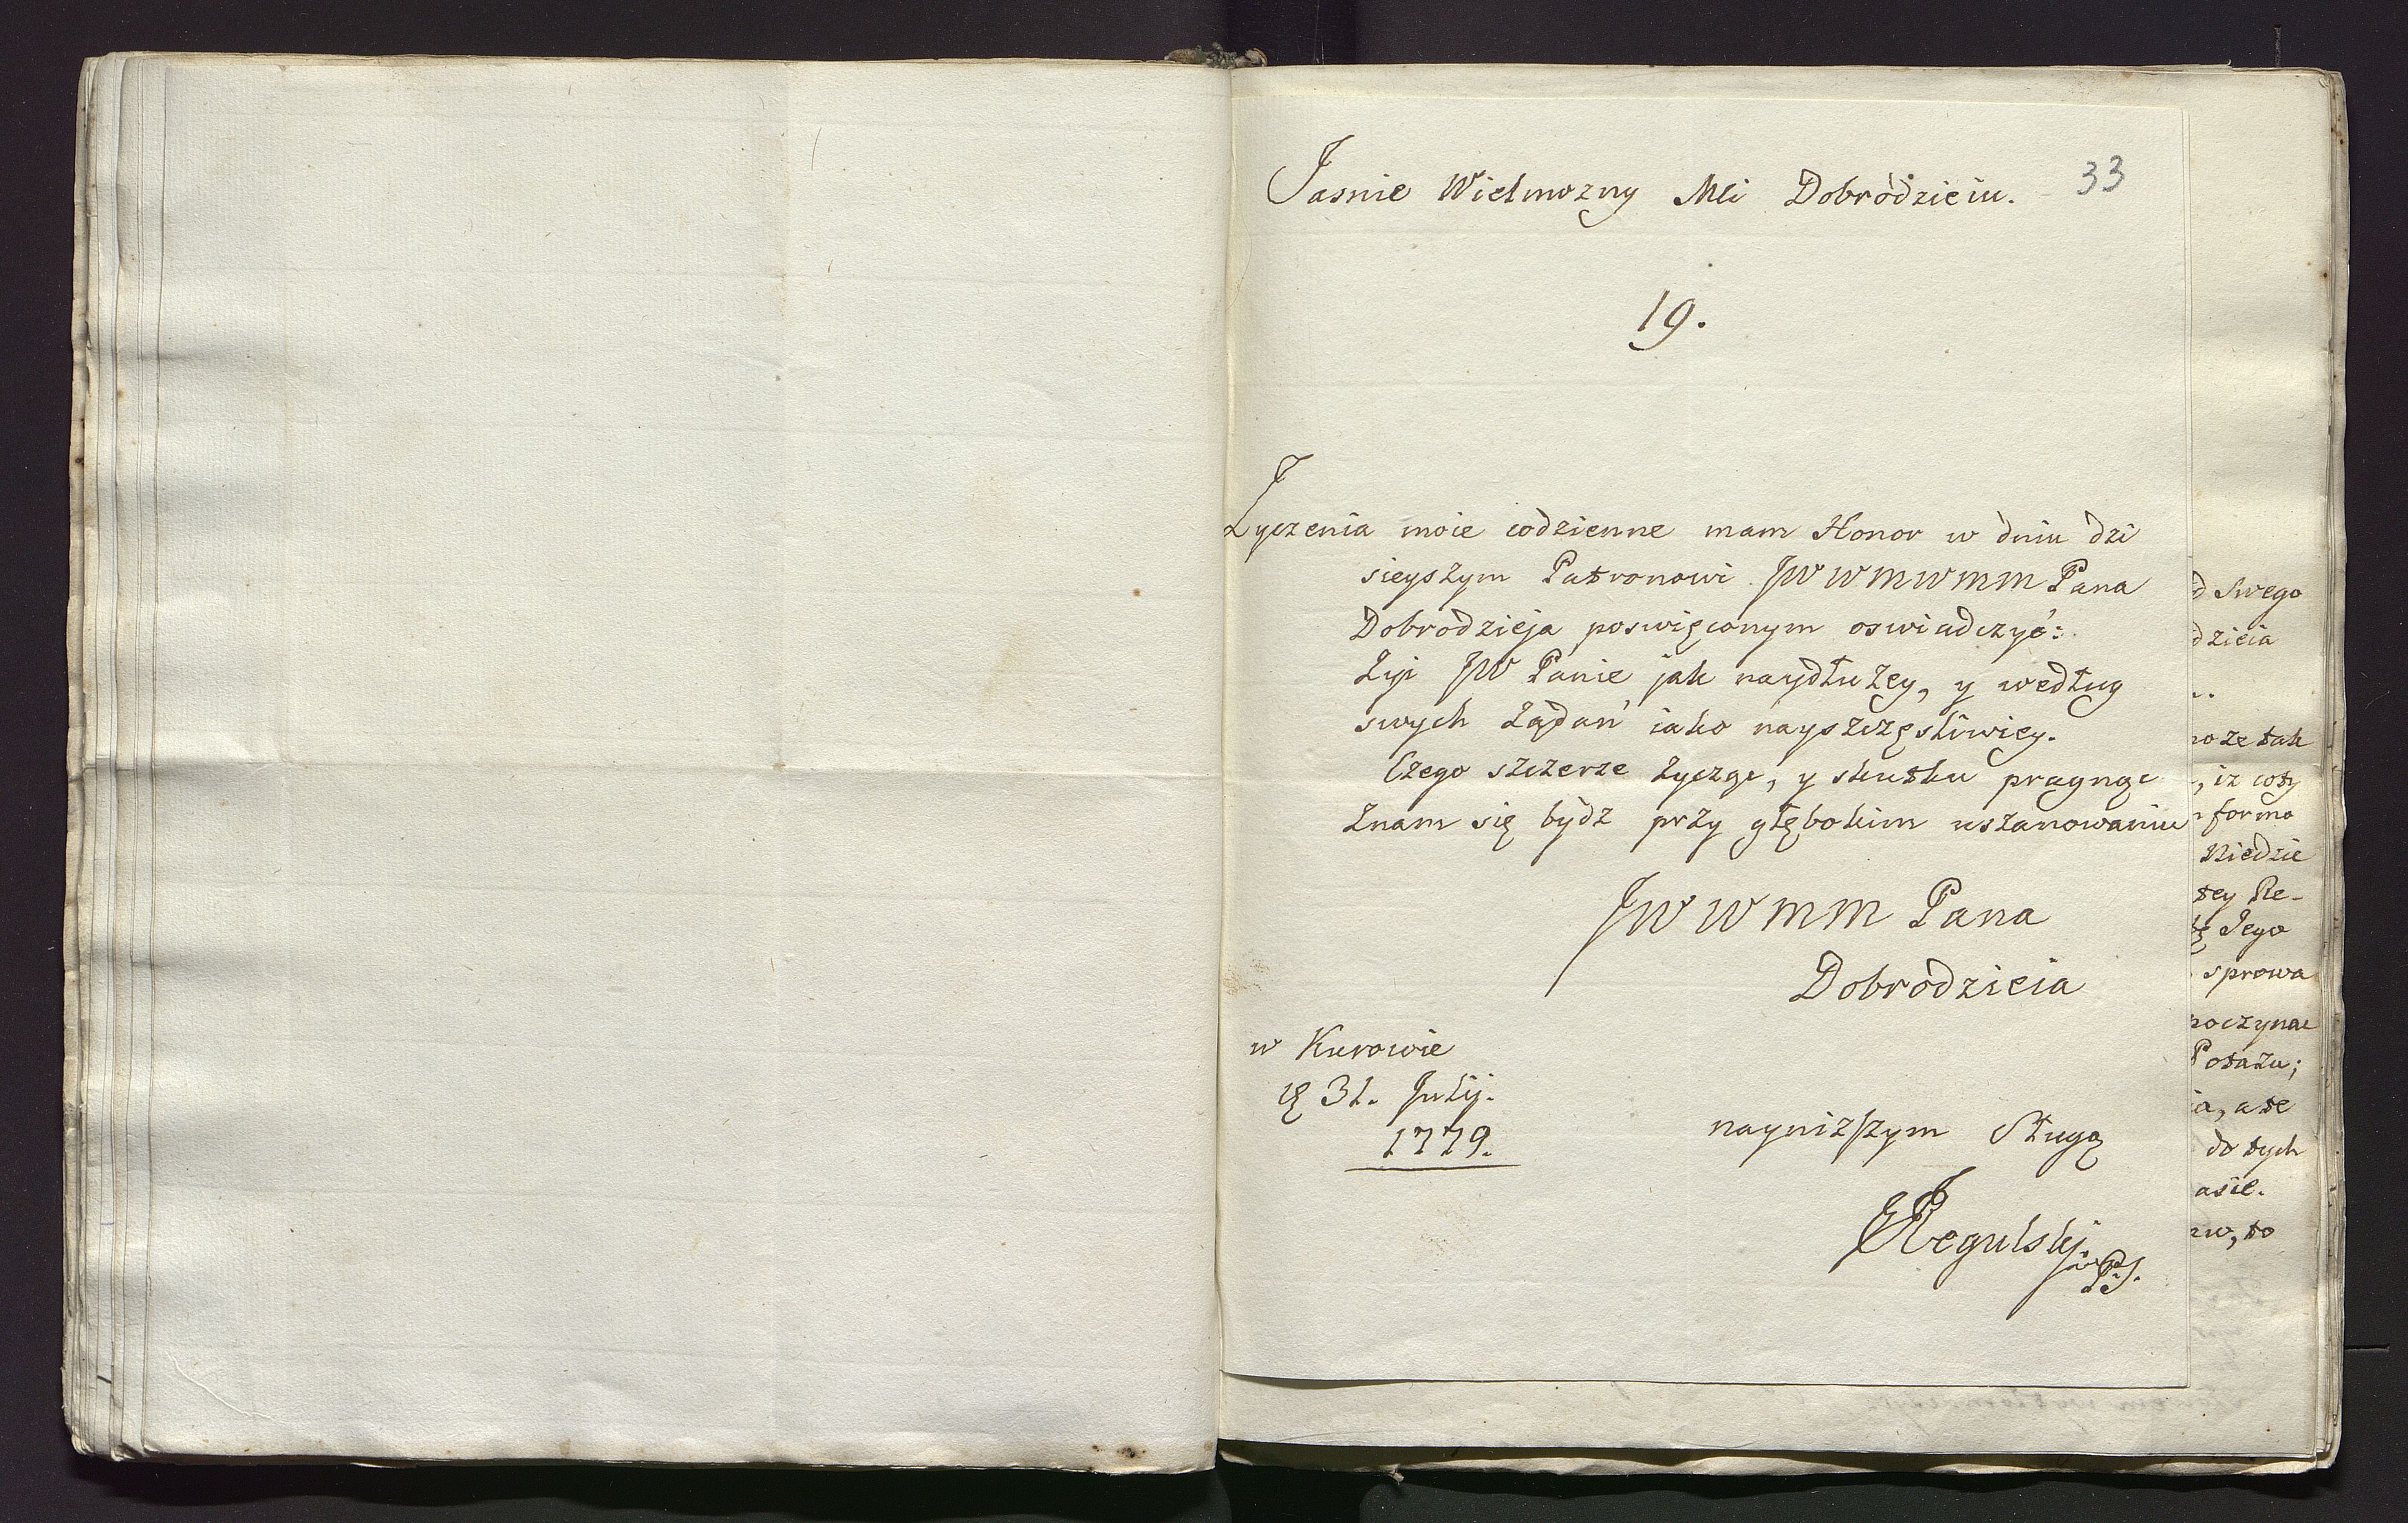 33
Jasnie Wielmozny Mci Dobrodzieiu.
19.
Zyczenia moie codzienne mam Honor w dniu dzi
sieyszym Patronowi JW W M W M M Pana
Dobrodzieja poswięconym oswiadczyć:
Zyi JW Panie jak naydłużey, y według
swych Żądań iako nayszczęsliwiey.
Czego szczerze zycząc, y skutku pragnąc
Znam się bydz przy głębokim uszanowaniu
JW W M M Pana
Dobrodzieia
w Kurowie
31. Julij.
1779.
nayniższym Sługą
Regulskj
d Swego
dzieia
..
może tak
, iz coby
forma
Niedzie
tey Re-
Jego
sprowa
poczynac
Potazu;
ia, a te
do tych
asie.
nw, to